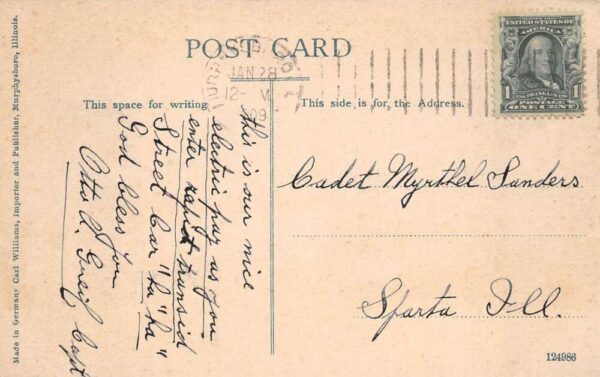 POST CARD
JAN 28
12- M
09
UNITED STATES OF AMERICA
1 FRANKLIN 1
POSTAGE
ONE CENT
This space for writing
This side is for the Address.
this is our nice
electric pay as you
enter rapid transid
Street Car "ha" "ha"
God bless you
Otto A. Greif Capt
Cadet Myrthel Sanders
Sparta Ill.
Made in Germany Carl Williams, Importer and Publisher, Murphysboro, Illinois.
124986